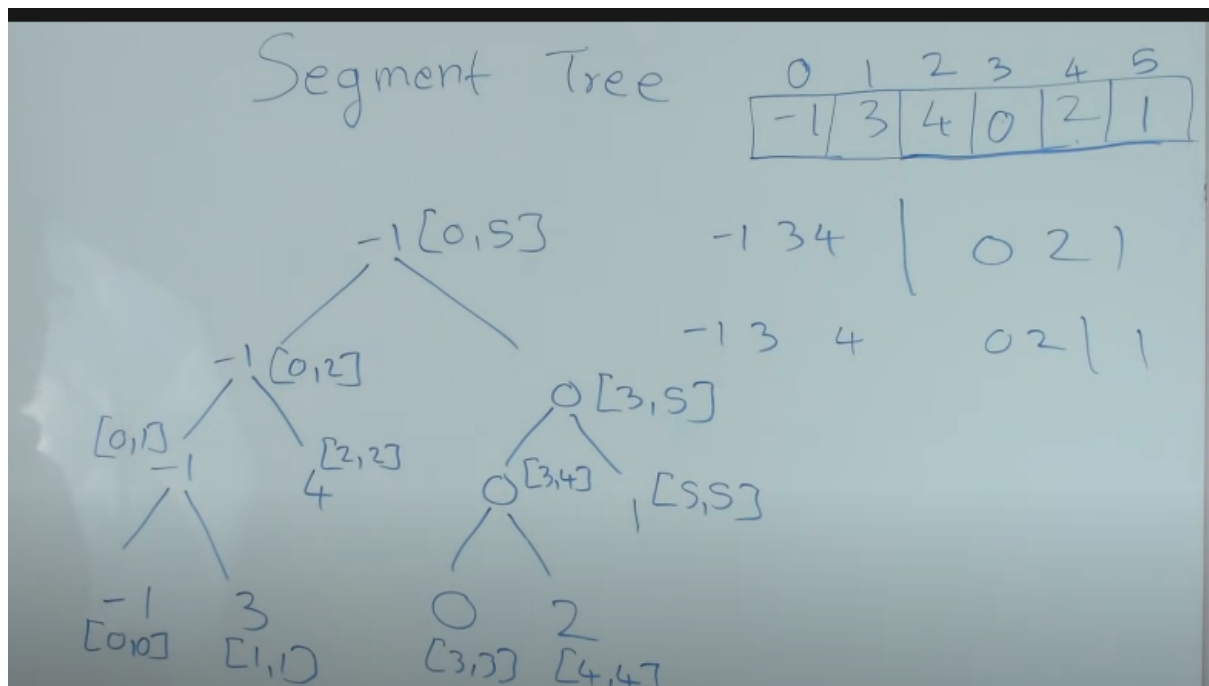 Segment Tree
0 1 2 3 4 5
-1 3 4 0 2 1
-1 [0,5]
-1 3 4 | 0 2 1
-1 [0,2]
-1 3 4 0 2 | 1
0 [3,5]
[0,1]
-1
[2,2]
4
0 [3,4]
1 [5,5]
-1 3 0 2
[0,0] [1,1] [3,3] [4,4]